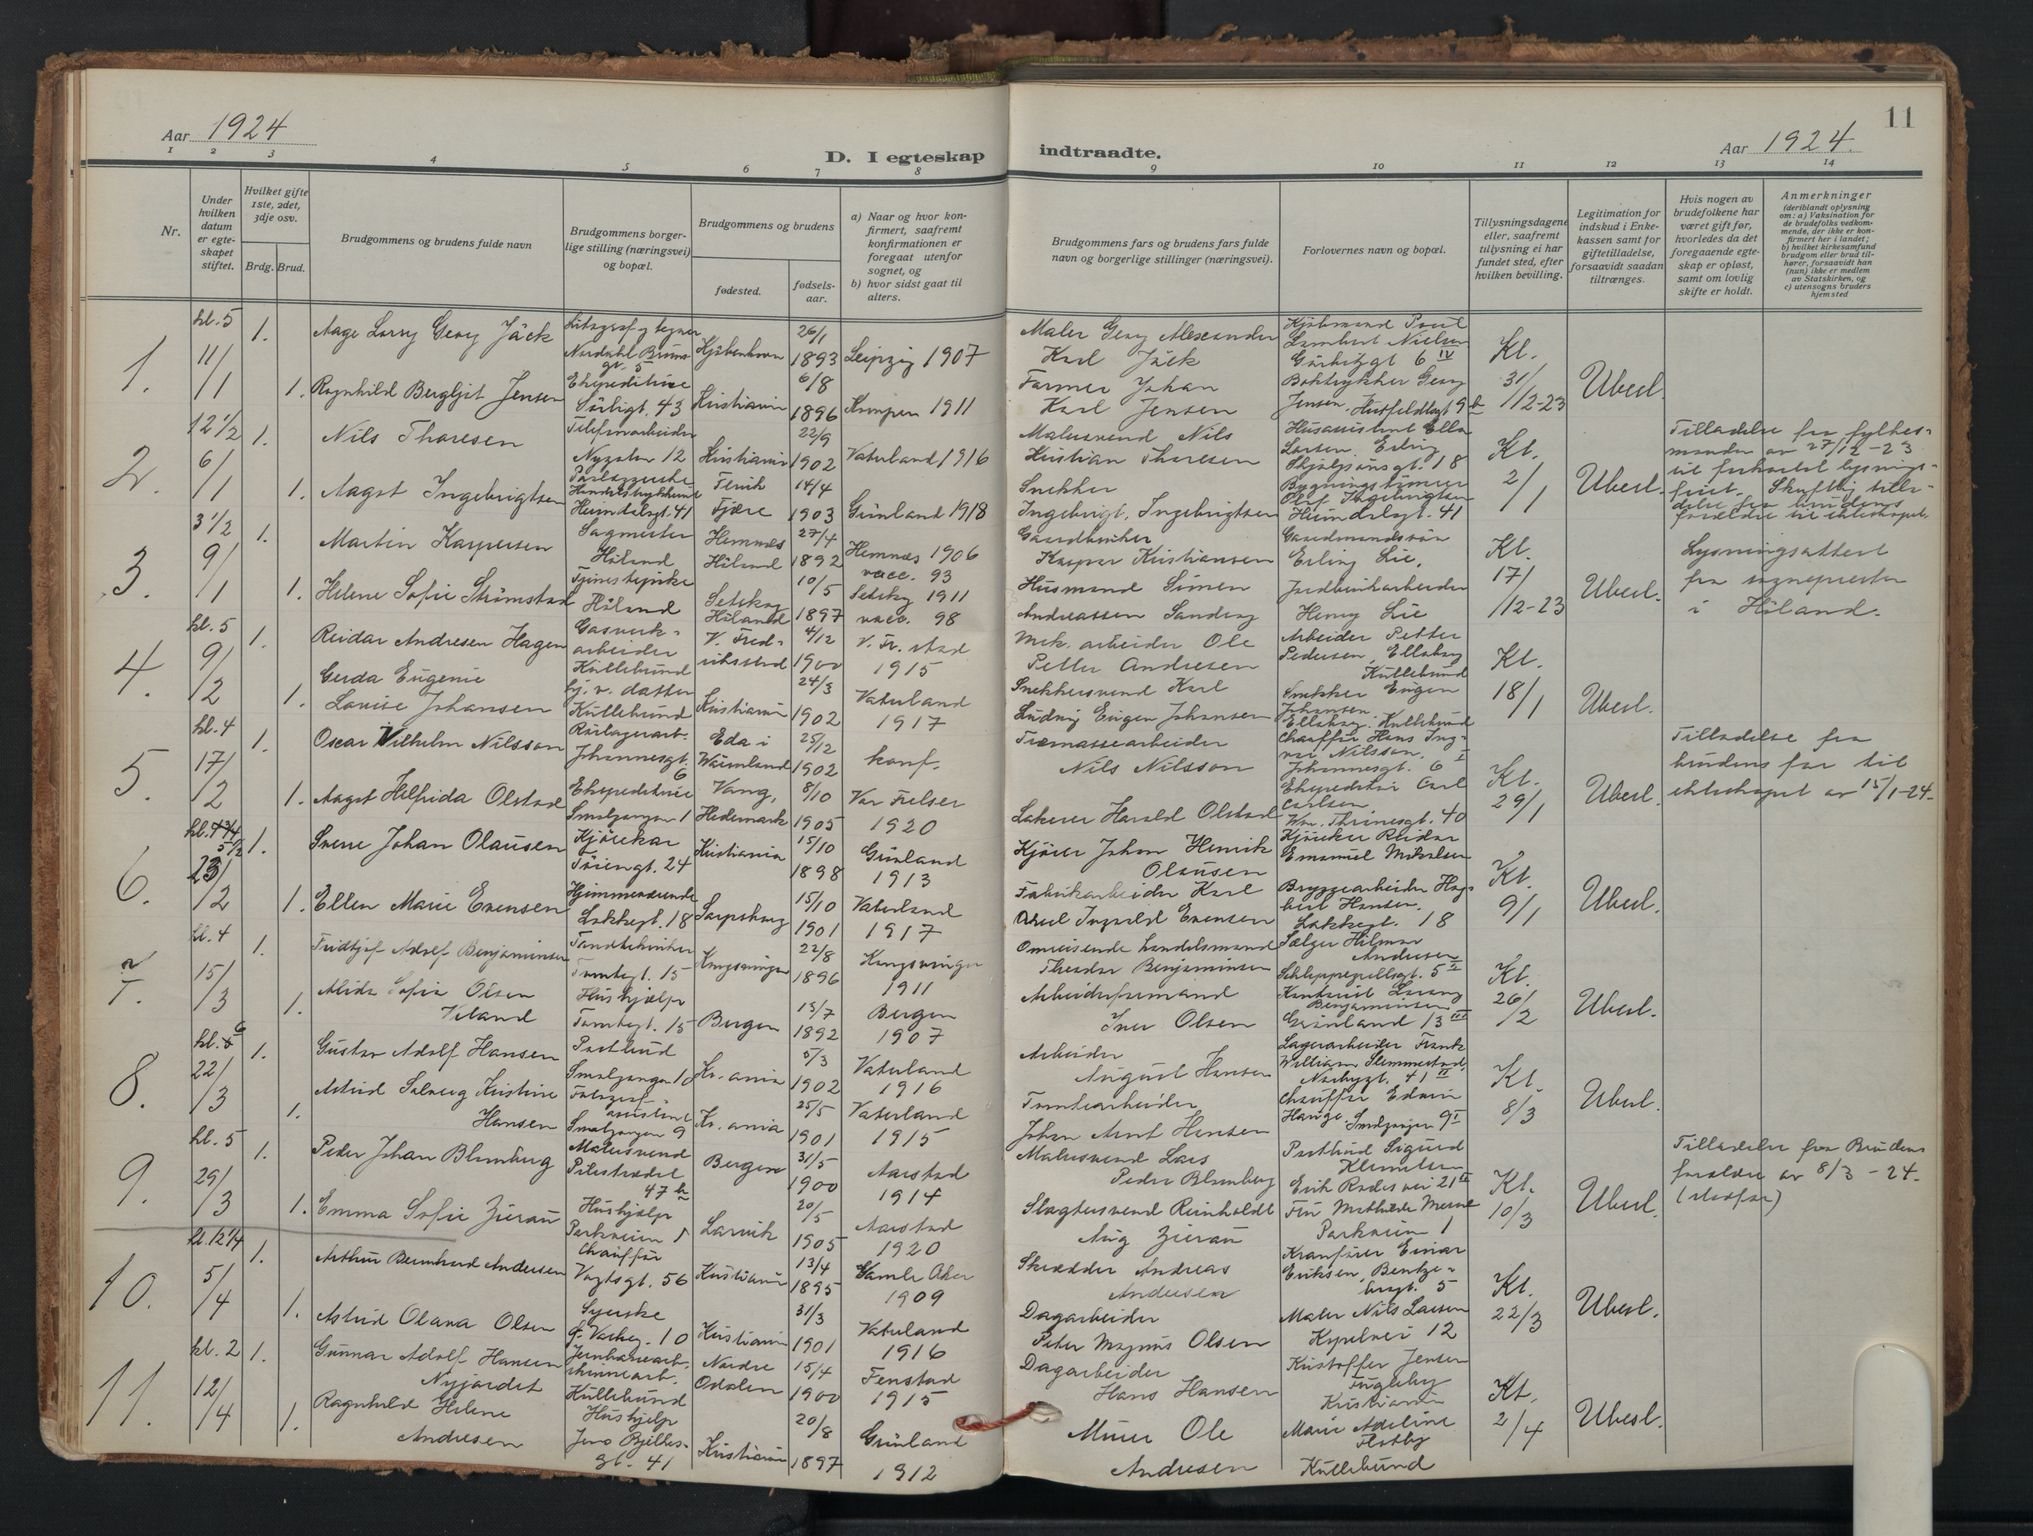 Aar 1924
D. I egteskap
indtraadte.
Aar 1924.
11
1 2 3 4 5 6 7 8 9 10 11 12 13 14
Nr.
Under hvilken datum er egte-skapet stiftet.
Hvilket gifte 1ste, 2det, 3dje osv.
Brdg. Brud.
Brudgommens og brudens fulde navn
Brudgommens borger-lige stilling (næringsvei) og bopæl.
Brudgommens og brudens
fødested.
fødsels-aar.
a) Naar og hvor kon-firmert, saafremt konfirmationen er foregaat utenfor sognet, og
b) hvor sidst gaat til alters.
Brudgommens fars og brudens fars fulde navn og borgerlige stillinger (næringsvei).
Forlovernes navn og bopæl.
Tillysningsdagene eller, saafremt tillysning ei har fundet sted, efter hvilken bevilling.
Legitimation for indskud i Enke-kassen samt for giftetilladelse, forsaavidt saadan tiltrænges.
Hvis nogen av brudefolkene har været gift før, hvorledes da det foregaaende egte-skap er opløst, samt om lovlig skifte er holdt.
Anmerkninger
(deriblandt oplysning om: a) Vaksination for de brudefolks vedkom-mende, der ikke er kon-firmert her i landet; b) hvilket kirkesamfund brudgom eller brud til-hører, forsaavidt han (hun) ikke er medlem av Statskirken, og c) utensogns bruders hjemsted
1. kl. 5 11/1
1. Aage Georg Jäck
Kjøbenhavn 26/1 1893 Leipzig 1907
Maler Georg Alexander Karl Jäck
1. Ragnhild Bergljot Jensen
Kristiania 6/8 1896 Kampen 1911
Farmer Johan Karl Jensen
Kl. 31/12-23 Ubesl.
2. 12 1/2 6/1
1. Nils Thoresen
Telefonarbeider
Kristiania 22/9 1902 Vaterland 1916
Malersvend Nils Kristian Thoresen
1. Aagot Ingebrigtsen
Heimdalsgt. 41
Fjære 14/4 1903 Grønland 1918
Snekker Ingebrigt Ingebrigtsen
Olaf Ingebrigtsen Heimdalsgt. 41
Kl. 2/1 Ubesl.
Tilladelse fra fylkes-manden av 27/12-23
3. 3 1/2 9/1
1. Martin Kaspersen
Sagmester Høland
Hemnæs Høland 27/4 1892 Hemnes 1906 vacc. 93
Gaardbruker Kaspar Kristiansen
Gaardmandssøn Erling Lie,
1. Helene Sofie Strømstad
Høland
Setskog Høland 10/5 1897 Setskog 1911 vacc. 98
Husmand Simen Andreassen Sandeng
Jordbrukarbeider Henry Lie
Kl. 17/12-23 Ubesl.
Lysningsattest fra sognepresten i Høland.
4. kl. 5 9/2
1. Reidar Andresen Hagen
Gasverk-arbeider Kullebund
V. Fred-rikstad 4/12 1900 V. Fr. stad 1915
Mek. arbeider Ole Petter Andresen
Arbeider Petter Pedersen, Kullebund
1. Gerda Eugenie Lovise Johansen
hj. v. datter Kullebund
Kristiania 24/3 1902 Vaterland 1917
Snekkersvend Karl Ludvig Eugen Johansen
Snekker Eugen Johansen Kullebund
Kl. 18/1 Ubesl.
5. kl. 4 17/2
1. Oscar Vilhelm Nilsson
Johannesgt. 6
Eda i Wärmland 25/12 1902 konf.
Nils Nilsson
Chauffør Hans Ing-var Nilsson, Johannesgt. 6 I
1. Aagot Helfrida Olstad
Smalgangen 1
Vang, Hedemark 8/10 1905 Vor Frelser 1920
Lakerer Harald Olstad
Carl Carlsen, 40
Kl. 29/1 Ubesl.
Tilladelse fra brudens far til ekteskapet av 15/1-24.
6. 23/2
1. Sverre Johan Olausen
Tøiengt. 24
Kristiania 15/10 1898 Grønland 1913
Kjører Johan Henrik Olausen
Kjører Reidar Emanuel Mikalsen
1. Ellen Marie Evensen
Hjemmeværende Lakkegt. 18
Sarpsborg 15/10 1901 Vaterland 1917
Fabrikarbeider Karl Evensen
Bryggearbeider Hansen, Lakkegt. 18
Kl. 9/1 Ubesl.
7. kl. 4 15/3
1. Fridtjof Adolf Benjaminsen
Tandtekniker Tomtegt. 15
Kongsvinger 22/8 1896 Kongsvinger 1911
Omreisende handelsmand Theodor Benjaminsen
Sælger Hilmar Andresen Schleppegrellsgt. 5
1. Alida Sofie Olsen
Hushjælp Tomtegt. 15
Bergen 13/7 1892 Bergen 1907
Arbeidsformand Iver Olsen
Benjaminsen Grønland 13 III
Kl. 26/2 Ubesl.
8. kl. 6 22/3
1. Gustav Adolf Hansen
Postbud Smalgangen 10
Kr. ania 5/3 1902 Vaterland 1916
Arbeider August Hansen
Lagerarbeider Frank William Slemmestad, 41 II
1. Astrid Solveig Kristine Hansen
Smalgangen 9
Kr. ania 25/5 1901 Vaterland 1915
Tomtearbeider Johan Arnt Hansen
Chauffør Edvin Hauge, Smalgangen 9 I
Kl. 8/3 Ubesl.
9. kl. 5 29/3
1. Peder Johan Blomberg
Malersvend Pilestrædet 47 b
Bergen 31/5 1900 Aarstad 1914
Malersvend Lars Peder Blomberg
Postbud Sigurd Klemetsen Erik Rødes vei 21 II
1. Emma Sofie Zierau
Hushjælp Parkveien 1
Larvik 20/5 1905 Aarstad 1920
Slagtersvend Reinholdt Aug Zierau
Parkveien 1
Kl. 10/3 Ubesl.
Tilladelse fra Brudens forældre av 8/3-24. (stedfar)
10. kl. 12 1/4 5/4
1. Arthur Bernhard Andersen
Chauffør Vogtsgt. 56
Kristiania 13/4 1895 Gamle Aker 1909
Skrædder Andreas Andersen
Kranfører Einar Eriksen, Bentse-brugt. 5
1. Astrid Olava Olsen
Syerske
Kristiania 31/3 1901 Vaterland 1916
Dagarbeider Peter Magnus Olsen
Maler Nils Larsen 12
Kl. 22/3 Ubesl.
11. kl. 2 12/4
1. Gunnar Adolf Hansen Nyjordet
Kullebund
Nordre Odalen 15/4 1900 Fenstad 1915
Dagarbeider Hans Hansen
Kristoffer Jensen Fugleby Kristiania
1. Ragnhild Helene Andresen
Hushjelp Jens Bjelkes-gt. 41
Kristiania 20/8 1897 Grønland 1912
Murer Ole Andresen
Marie Adeline Flotby Kullebund
Kl. 2/4 Ubesl.